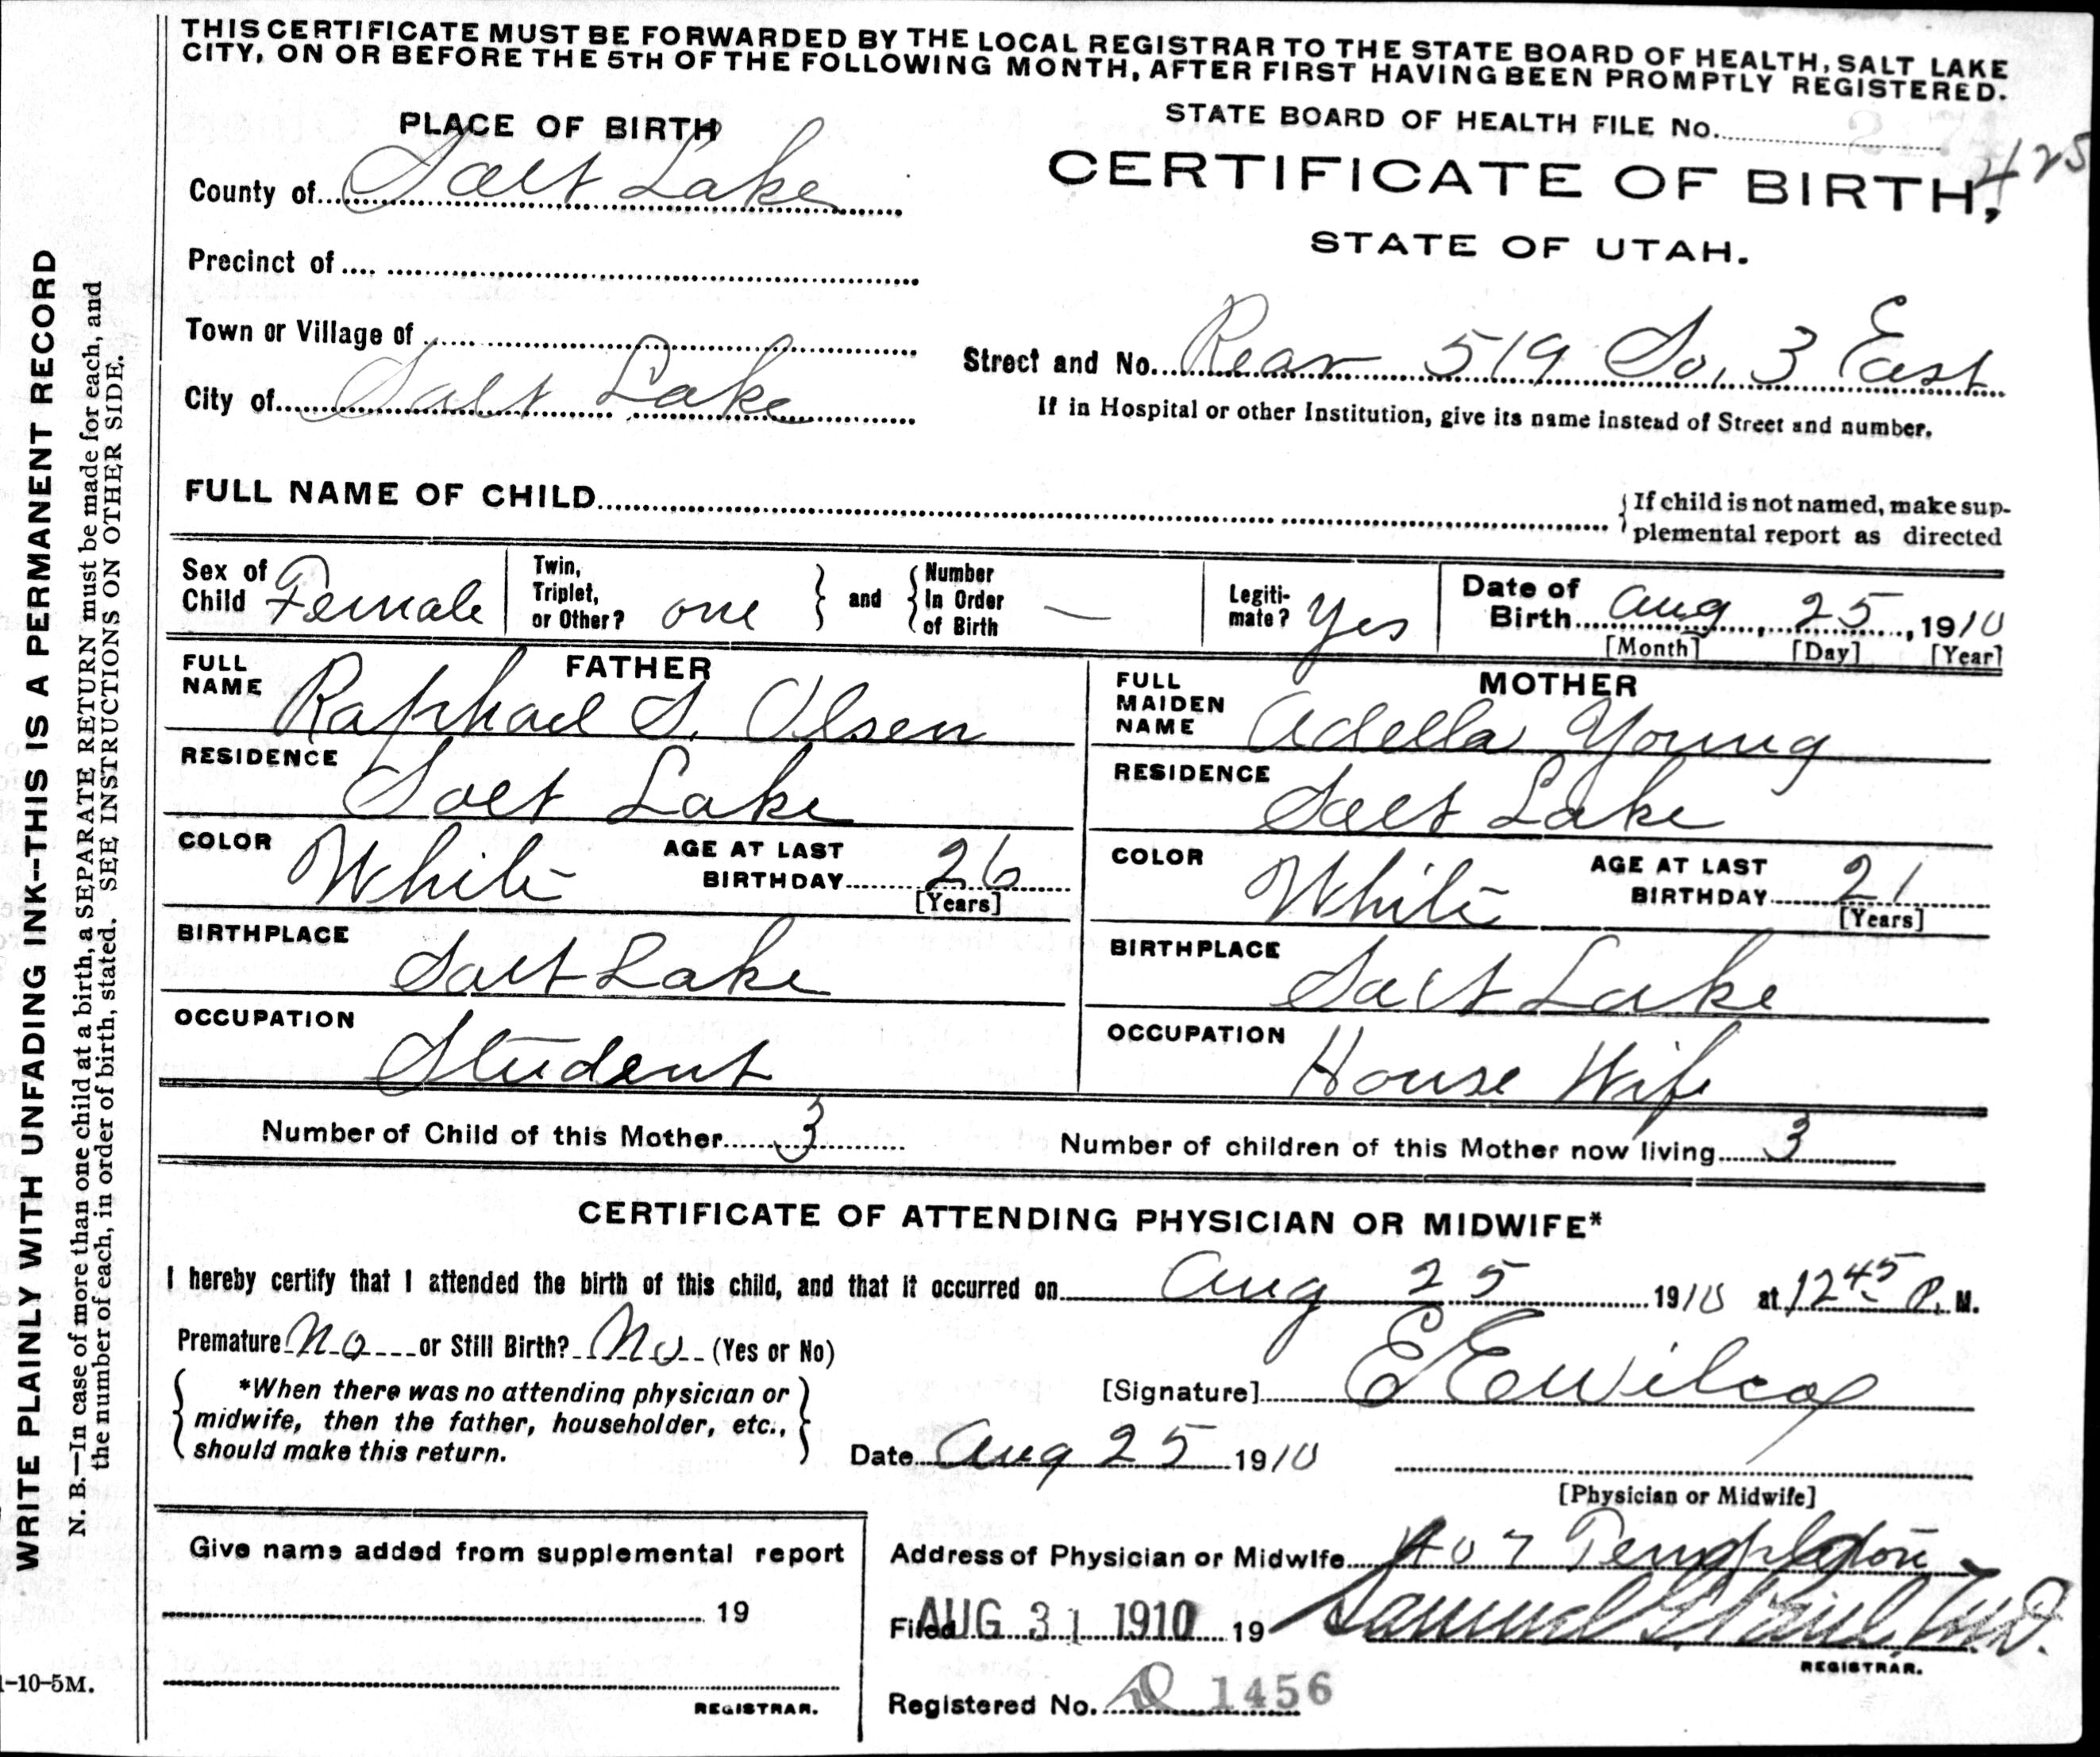 THIS CERTIFICATE MUST BE FORWARDED BY THE LOCAL REGISTRAR TO THE STATE BOARD OF HEALTH, SALT LAKE
CITY, ON OR BEFORE THE 5TH OF THE FOLLOWING MONTH, AFTER FIRST HAVING BEEN PROMPTLY REGISTERED.
PLACE OF BIRTH
STATE BOARD OF HEALTH FILE No.
425
County of Salt Lake
CERTIFICATE OF BIRTH,
STATE OF UTAH.
Precinct of
Town or Village of
Street and No. Rear 519 So. 3 East
City of Salt Lake
If in Hospital or other Institution, give its name instead of Street and number.
FULL NAME OF CHILD
If child is not named, make sup-
plemental report as directed
Sex of Child Female
Twin, Triplet, or Other? one
and
Number In Order of Birth —
Legiti-mate? Yes
Date of Birth Aug 25, 1910
[Month] [Day] [Year]
FATHER
FULL NAME Raphael S. Olsen
RESIDENCE Salt Lake
COLOR White AGE AT LAST BIRTHDAY 26
[Years]
BIRTHPLACE Salt Lake
OCCUPATION Student
MOTHER
FULL MAIDEN NAME Adella Young
RESIDENCE Salt Lake
COLOR White AGE AT LAST BIRTHDAY 21
[Years]
BIRTHPLACE Salt Lake
OCCUPATION House Wife
Number of Child of this Mother 3
Number of children of this Mother now living 3
CERTIFICATE OF ATTENDING PHYSICIAN OR MIDWIFE*
I hereby certify that I attended the birth of this child, and that it occurred on Aug 25 1910 at 12 45 P. M.
Premature No or Still Birth? No (Yes or No)
*When there was no attending physician or
midwife, then the father, householder, etc.,
should make this return.
[Signature] E E Wilcox
Date Aug 25 1910
[Physician or Midwife]
Give name added from supplemental report
19
REGISTRAR.
Address of Physician or Midwife 407 Templeton
Filed AUG 31 1910 19 Samuel G. Paul M.D.
REGISTRAR.
Registered No. 1456
WRITE PLAINLY WITH UNFADING INK--THIS IS A PERMANENT RECORD
N. B.—In case of more than one child at a birth, a SEPARATE RETURN must be made for each, and
the number of each, in order of birth, stated. SEE INSTRUCTIONS ON OTHER SIDE.
-10-5M.